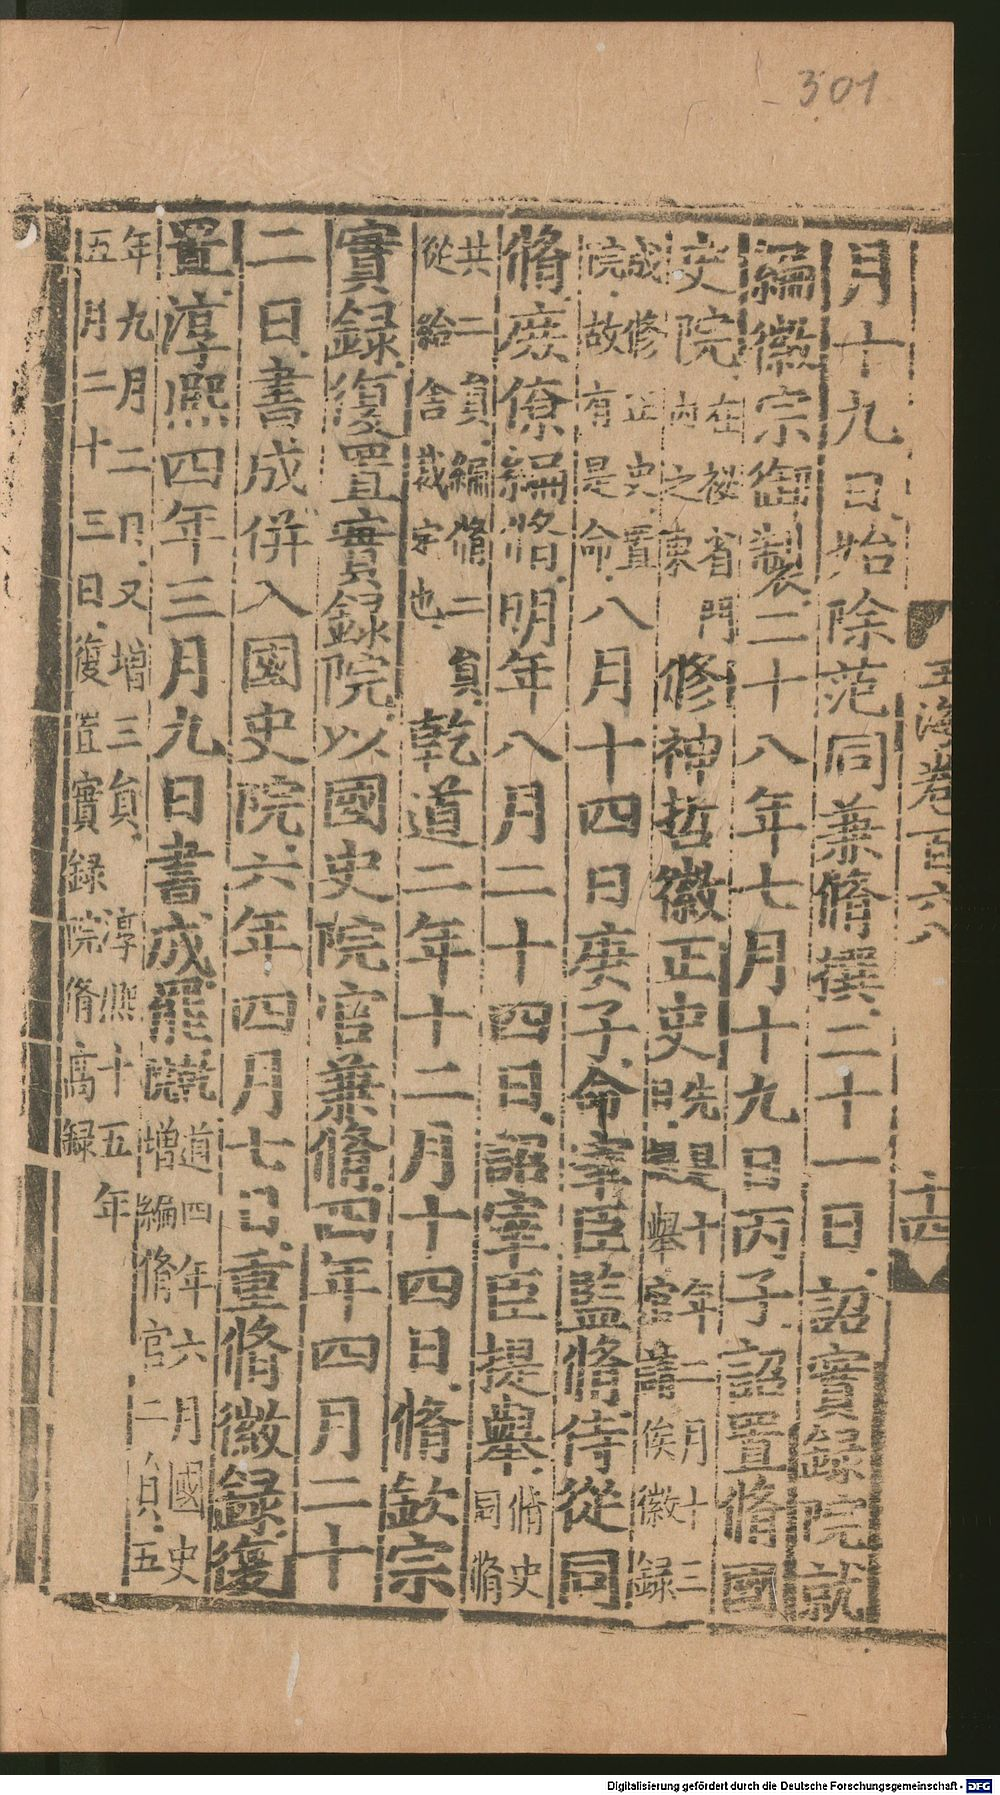 301
玉海卷百六八
十四
月十九日始除范同兼脩撰二十一日詔實録院就
編徽宗御製二十八年七月十九日丙子詔置脩國
史院在祕省門内之東修神哲徽正史先是十年二月十三日舉官請俟徽録
成修正史置院故有是命八月十四日庚子命宰臣監脩侍從同
脩庶僚編脩明年八月二十四日詔宰臣提舉脩史同脩
共二員編脩二員從給舍裁定也乾道二年十二月十四日脩欽宗
實録復置實録院以國史院官兼脩四年四月二十
二日書成併入國史院六年四月七日重脩徽録復
置淳熙四年三月九日書成罷院道四年六月國史院增編脩官二員五
年九月二日又增三員淳熙十五年五月二十三日復置實録院脩高録
Digitalisierung gefördert durch die Deutsche Forschungsgemeinschaft - DFG